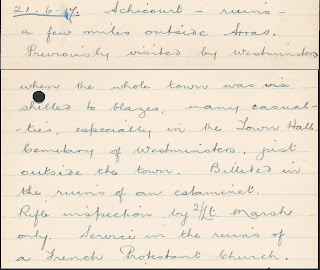 21.6.17. Achicourt - ruins -
a few miles outside Arras.
Previously visited by Westminsters
when the whole town was vis
shelled to blazes, many casual-
-ties, especially in the Town Hall.
Cemetary of Westminsters, just
outside the town. Billeted in
the ruins of an estaminet.
Rifle inspection by 2/Lt. Marsh
only. Service in the ruins of
a French Protestant Church.